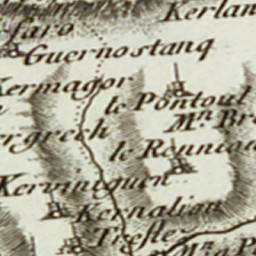 Kerlan
faro
Guernostanq
Kermagor
le Pontoul
Mⁿ Br
rgrech
le Ranniou
Kerviniguen
Kernalian
Trefle
Mⁿ P